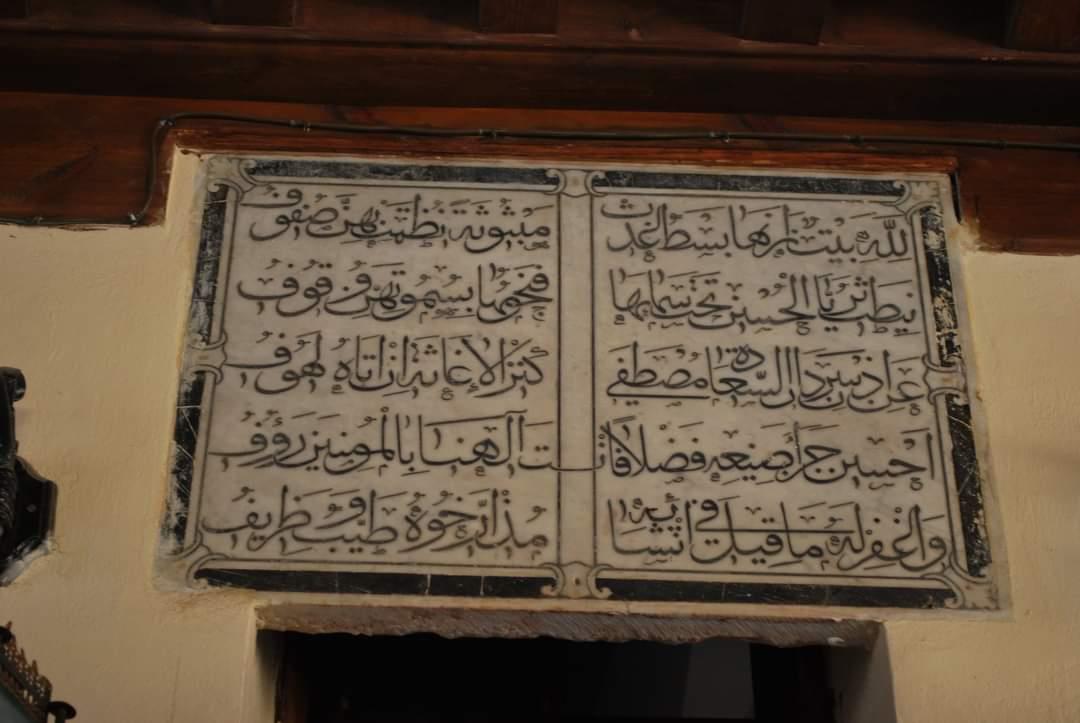 لله بيت زانها بسط غدت مبثوثة نظمت بهن صفوف
نيطت ثريا الحسن تحت سمائها فنجومها بسموتهن وقوف
عن اذن سردار السعادة مصطفى كنز الاغاثة ان اتاه لهوف
احسن جزاً بصنيعه فضلا فانت آلهنا بالمؤمنين رؤف
واغفر له ما قيل في انشائه مذ ارخوه طيب وظريف